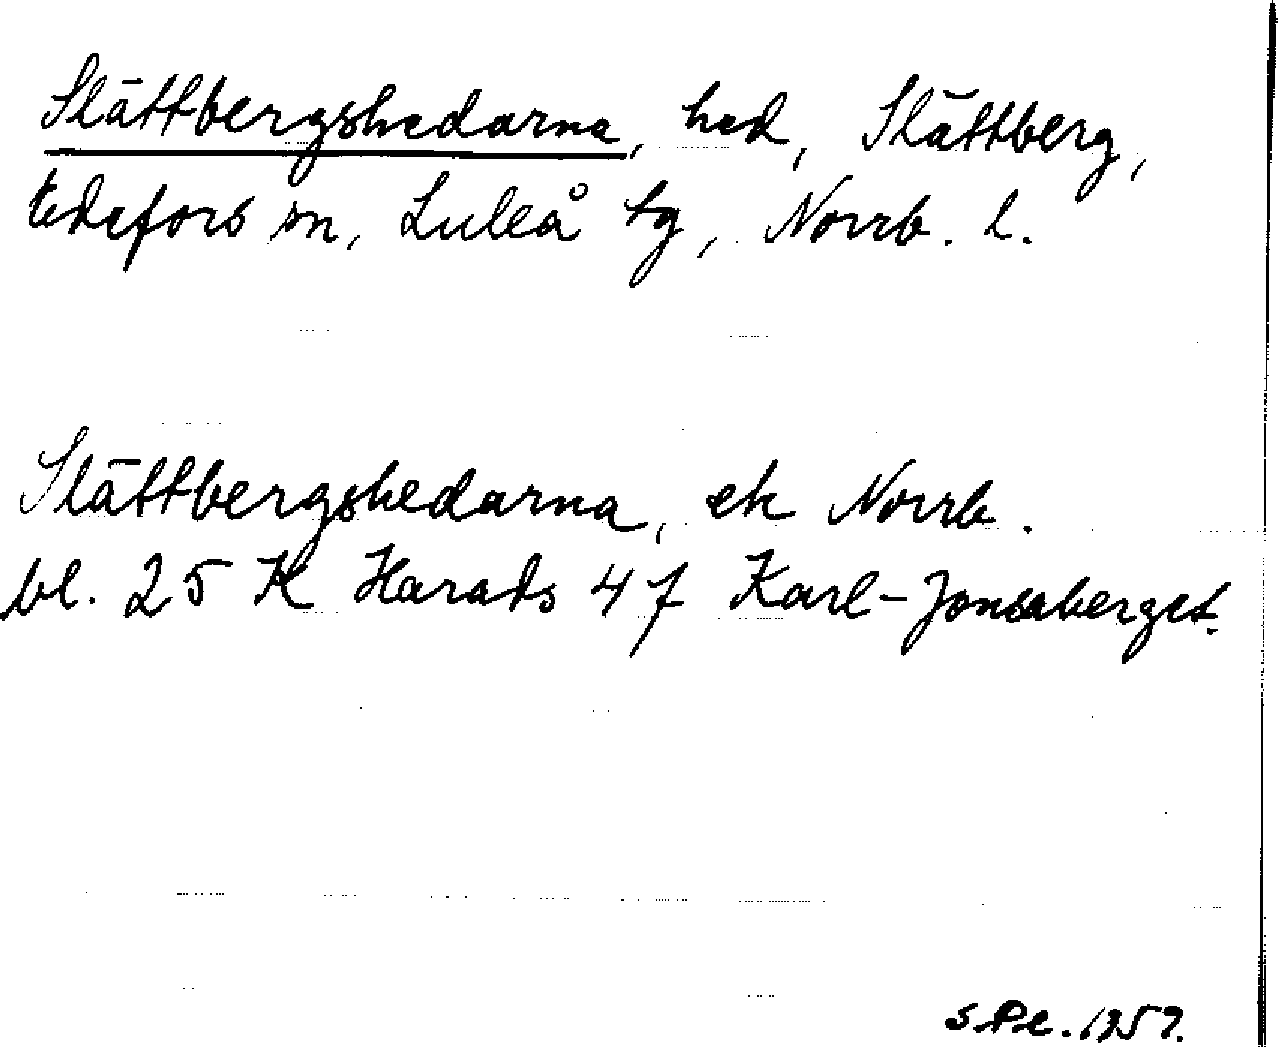 Slättbergshedarna, hed, Slättberg,
Edefors sn, Luleå tg, Norrb. l.
Slättbergshedarna, ek Norrb.
bl. 25 K Harads 4 f Karl-Jonsaberget.
1957.